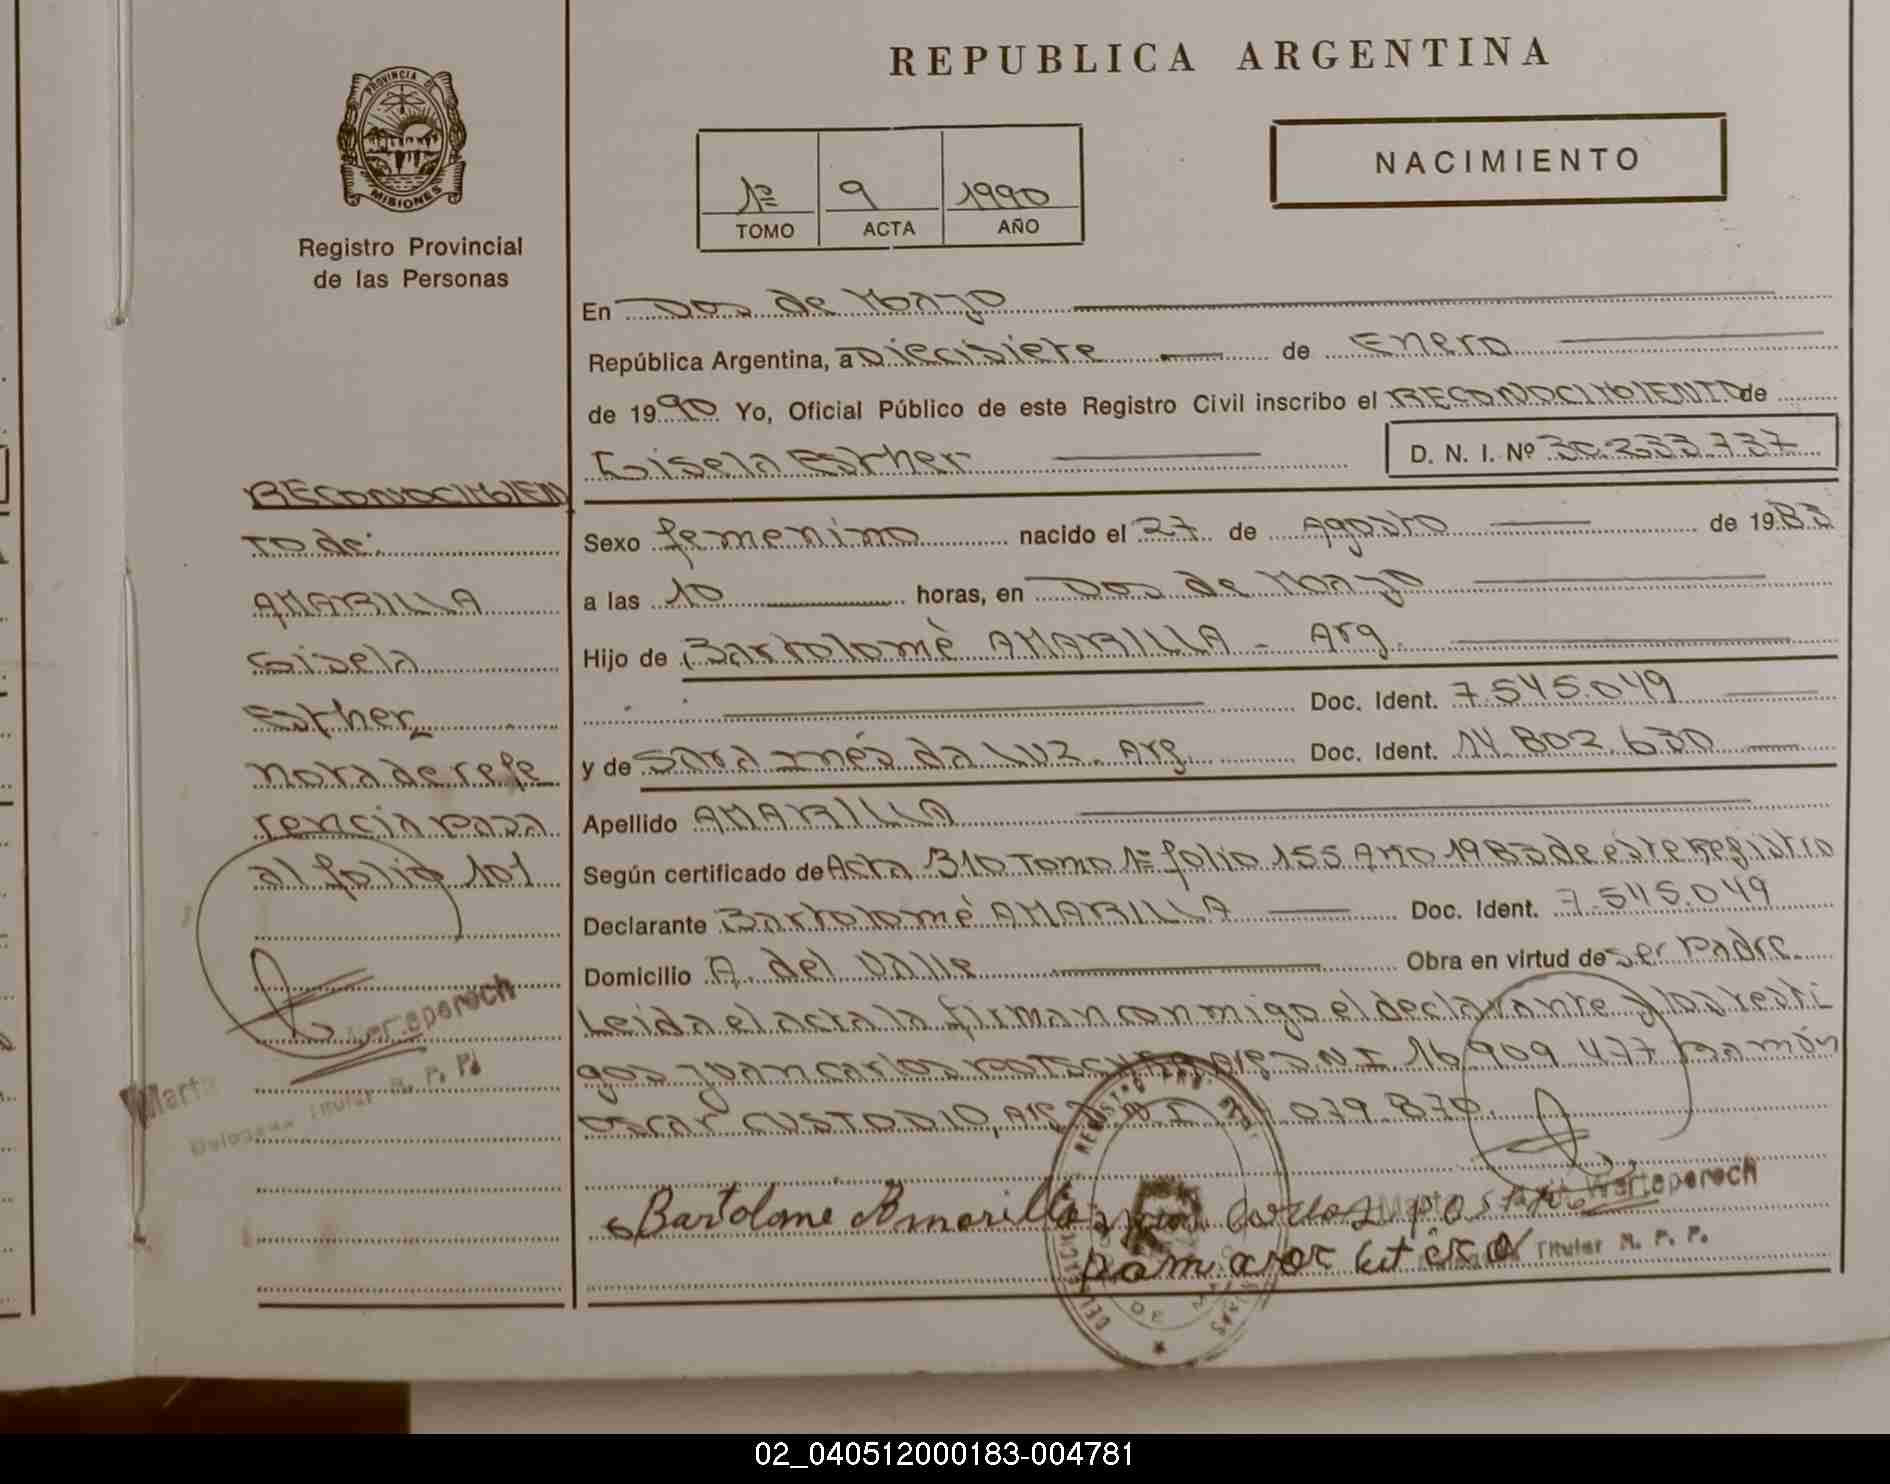 REPUBLICA ARGENTINA
PROVINCIA DE
MISIONES
Registro Provincial
de las Personas
1º 9 1990
TOMO ACTA AÑO
NACIMIENTO
En Dos de Mayo
República Argentina, a Diecisiete de Enero
de 1990 Yo, Oficial Público de este Registro Civil inscribo el RECONOCIMIENTO de
Gisela Esther D. N. I. Nº 30.233.737
RECONOCIMIEN
TO de:
AMARILLA
Gisela
Esther
nota de refe
rencia pasa
al folio 101
Sexo femenino nacido el 27 de Agosto de 1983
a las 10 horas, en Dos de Mayo
Hijo de Bartolomè AMARILLA - Arg.
Doc. Ident. 7.545.049
y de Sara Inés da LUZ. Arg. Doc. Ident. 14.802.630
Apellido AMARILLA
Según certificado de Acta 310 Tomo 1º folio 155 Año 1983 de este Registro
Declarante Bartolomè AMARILLA Doc. Ident. 7.545.049
Domicilio A. del Valle Obra en virtud de ser padre.
Leida el acta la firman conmigo el declarante y los testi
gos Juan Carlos D.N.I. 16 909 477 Ramón
Oscar CUSTODIO, Arg D.N.I 079.870.
Bartolome Amarilla Carlos
Marta Warteperoch
Titular R. P. P.
02_040512000183-004781